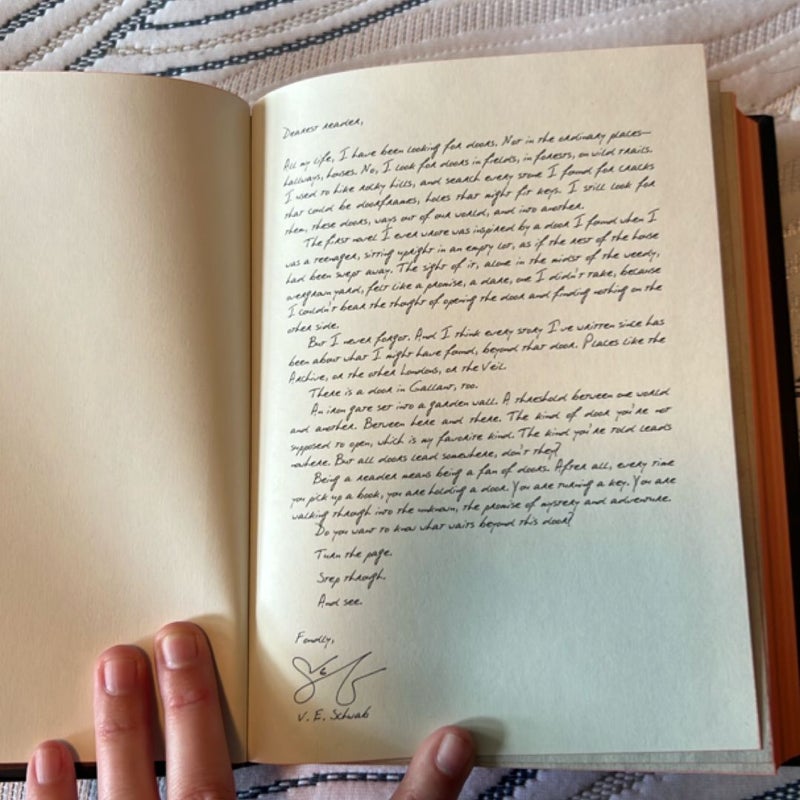 Dearest reader,
All my life, I have been looking for doors. Not in the ordinary places—
hallways, houses. No, I look for doors in fields, in forests, on wild trails.
I used to hike rocky hills, and search every stone I found for cracks
that could be doorframes, holes that might fit keys. I still look for
them, these doors, ways out of our world, and into another.
The first novel I ever wrote was inspired by a door I found when I
was a teenager, sitting upright in an empty lot, as if the rest of the house
had been swept away. The sight of it, alone in the midst of the weedy,
overgrown yard, felt like a promise, a dare, one I didn't take, because
I couldn't bear the thought of opening the door and finding nothing on the
other side.
But I never forgot. And I think every story I've written since has
been about what I might have found, beyond that door. Places like the
Archive, or the other Londons, or the Veil.
There is a door in Gallant, too.
An iron gate set into a garden wall. A threshold between one world
and another. Between here and there. The kind of door you're not
supposed to open, which is my favorite kind. The kind you're told leads
nowhere. But all doors lead somewhere, don't they?
Being a reader means being a fan of doors. After all, every time
you pick up a book, you are holding a door. You are turning a key. You are
walking through into the unknown, the promise of mystery and adventure.
Do you want to know what waits beyond this door?
Turn the page.
Step through.
And see.
Fondly,
V. E. Schwab